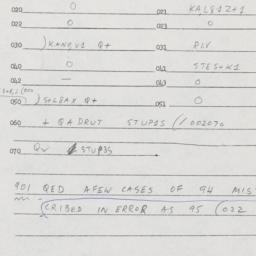 020 0 021 KALQ1Z+1
022 0 023 0
030 )KANEV1 Q+ 031 PLV
040 0 041 STESHK1
042 — 043 0
050 )SOLBAX Q+ 051 0
060 + QADRUT STUP1S (/002070
070 QV STUP3S
901 QED AFEW CASES OF 94 MIS
CRIBED IN ERROR AS 95 (022